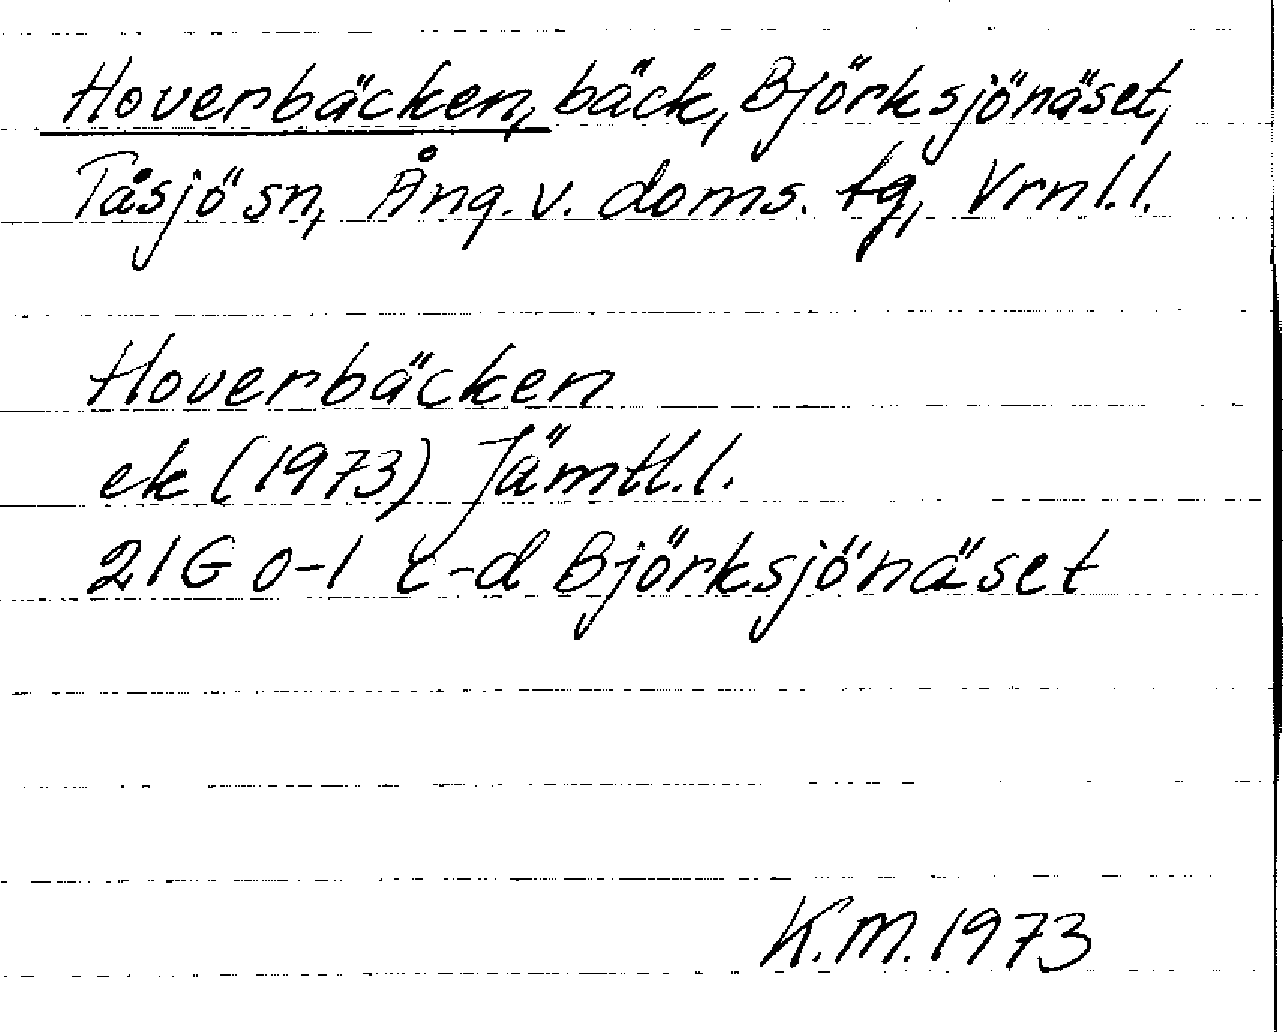 Hoverbäcken, bäck, Björksjönäset,
Tåsjö sn, Ång. v. doms. tg, Vrnl.l.
Hoverbäcken
ek (1973) Jämtl.l.
21G 0-1 c-d Björksjönäset
K.M. 1973